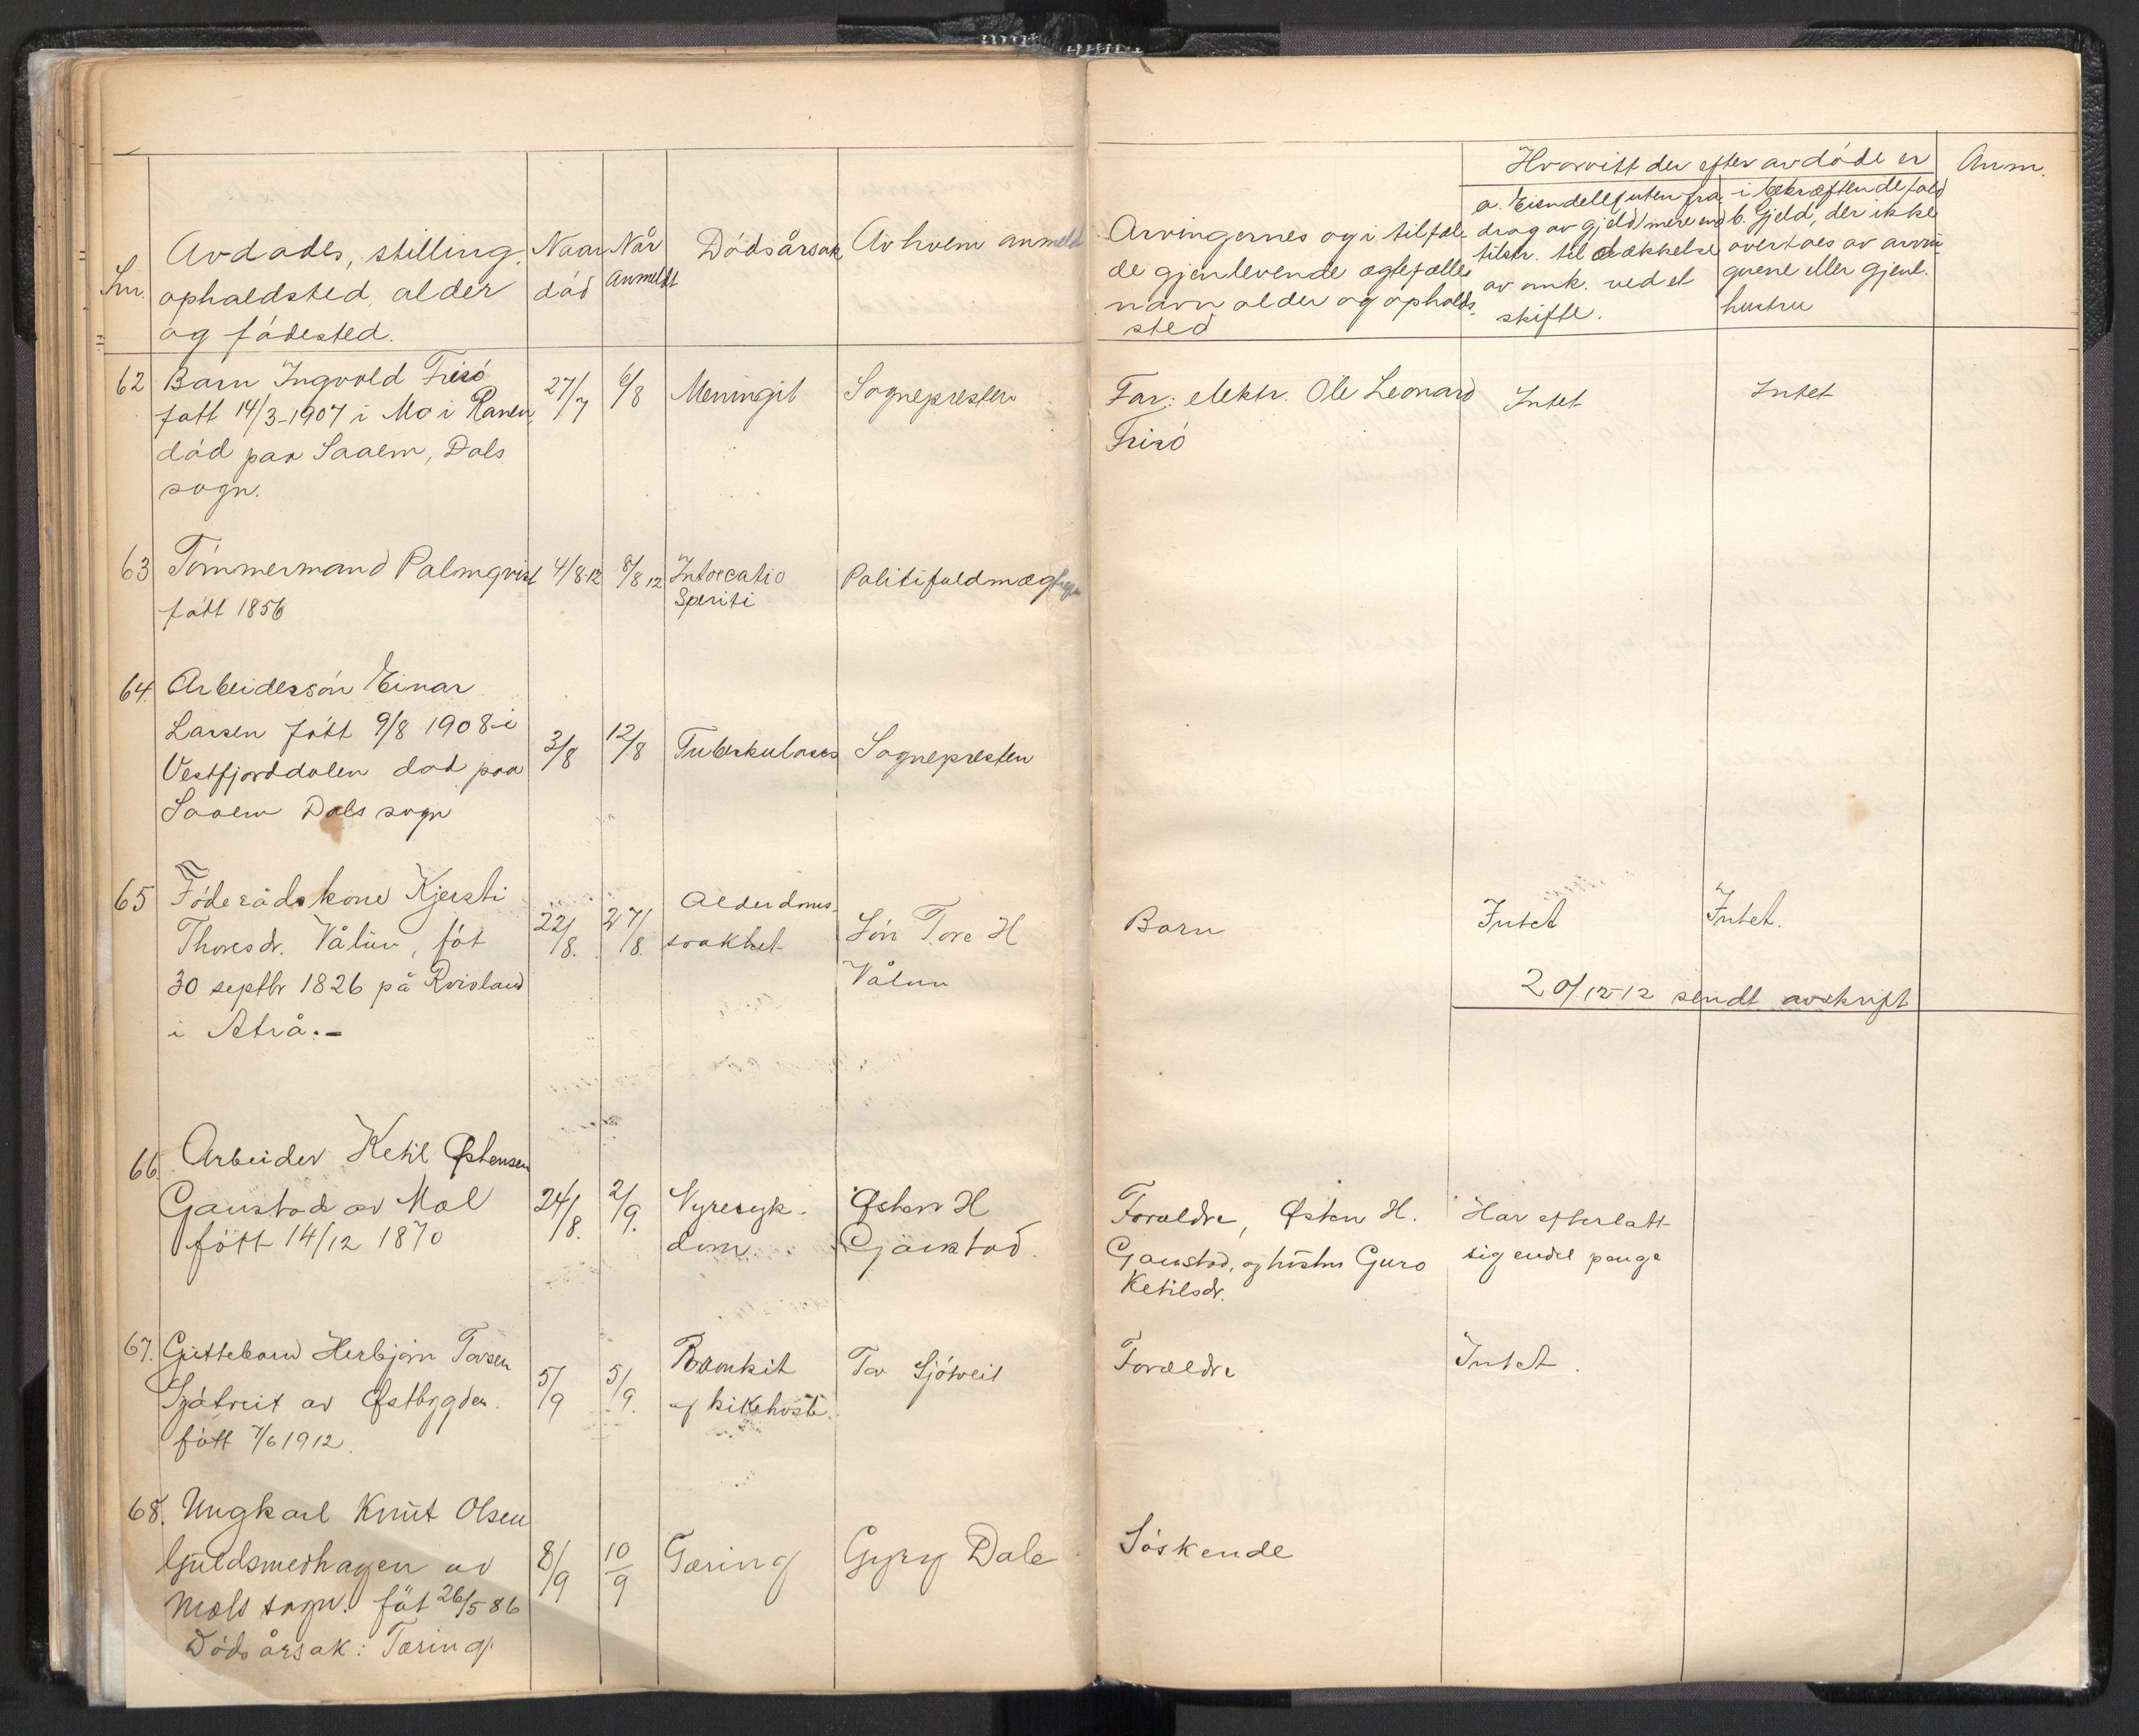 Lnr.
Avdødes, stilling,
opholdsted, alder
og fødested.
Naar død
Når Anmeldt
Dødsårsak
Av hvem anmeldt
Arvingernes og i tilfæl-
de gjenlevende ægtefælles
navn alder og opholds-
sted
Hvorvitt der efter avdøde er
a. Eiendeler (uten fra-
drag av gjeld) mere end
tilstr. til dækkelse
av omk. ved et
skifte.
i bekræftende fald
b. Gjeld, der ikke
overtaes av arvin-
gerne eller gjenl.
hustru
Anm.
62 Barn Ingvold Frisø
født 14/3-1907 i Mo i Ranen,
død paa Saaem, Dals
sogn.
27/7
6/8
Meningit
Sognepresten
Far: elektr. Ole Leonard
Frisø
Intet
Intet
63 Tømmermand Palmqvist
født 1856
4/8-12
8/8 12
Intoccatio
Speriti
Politifuldmægtigen
64. Arbeidersøn Einar
Larsen født 9/8 1908 i
Vestfjorddalen død paa
Saaem Dals sogn
3/8
12/8
Tuberkuloses
Sognepresten
65 Føderådskone Kjersti
Thoresdr. Våluu, føt
30 septbr 1826 på Kvisland
i Atrå.-
22/8.
27/8.
Alderdoms-
svakhet
Søn Tore H
Våluu
Barn
Intet
Intet.
20/12-12 sendt avskrift
66. Arbeider Ketil Østensen
Gaustad av Mæl
født 14/12 1870
24/8.
2/9.
Nyresyk-
dom
Østen H
Gaustad.
Forældre, Østen H.
Gaustad, og hustru Guro
Ketilsdr.
Har efterlatt
sig endel penge
67. Guttebarn Herbjørn Torsen
Sjøtveit av Østbygden.
født 7/6 1912.
5/9
5/9.
Bronkit
og kikhoste.
Tor Sjøtveit
Forældre
Intet.
68. Ungkarl Knut Olsen
Guldsmedhagen av
Mæls sogn. føt 26/5 86
Dødsårsak: Tæring.
8/9
10/9
Tæring
Gyry Dale
Søskende